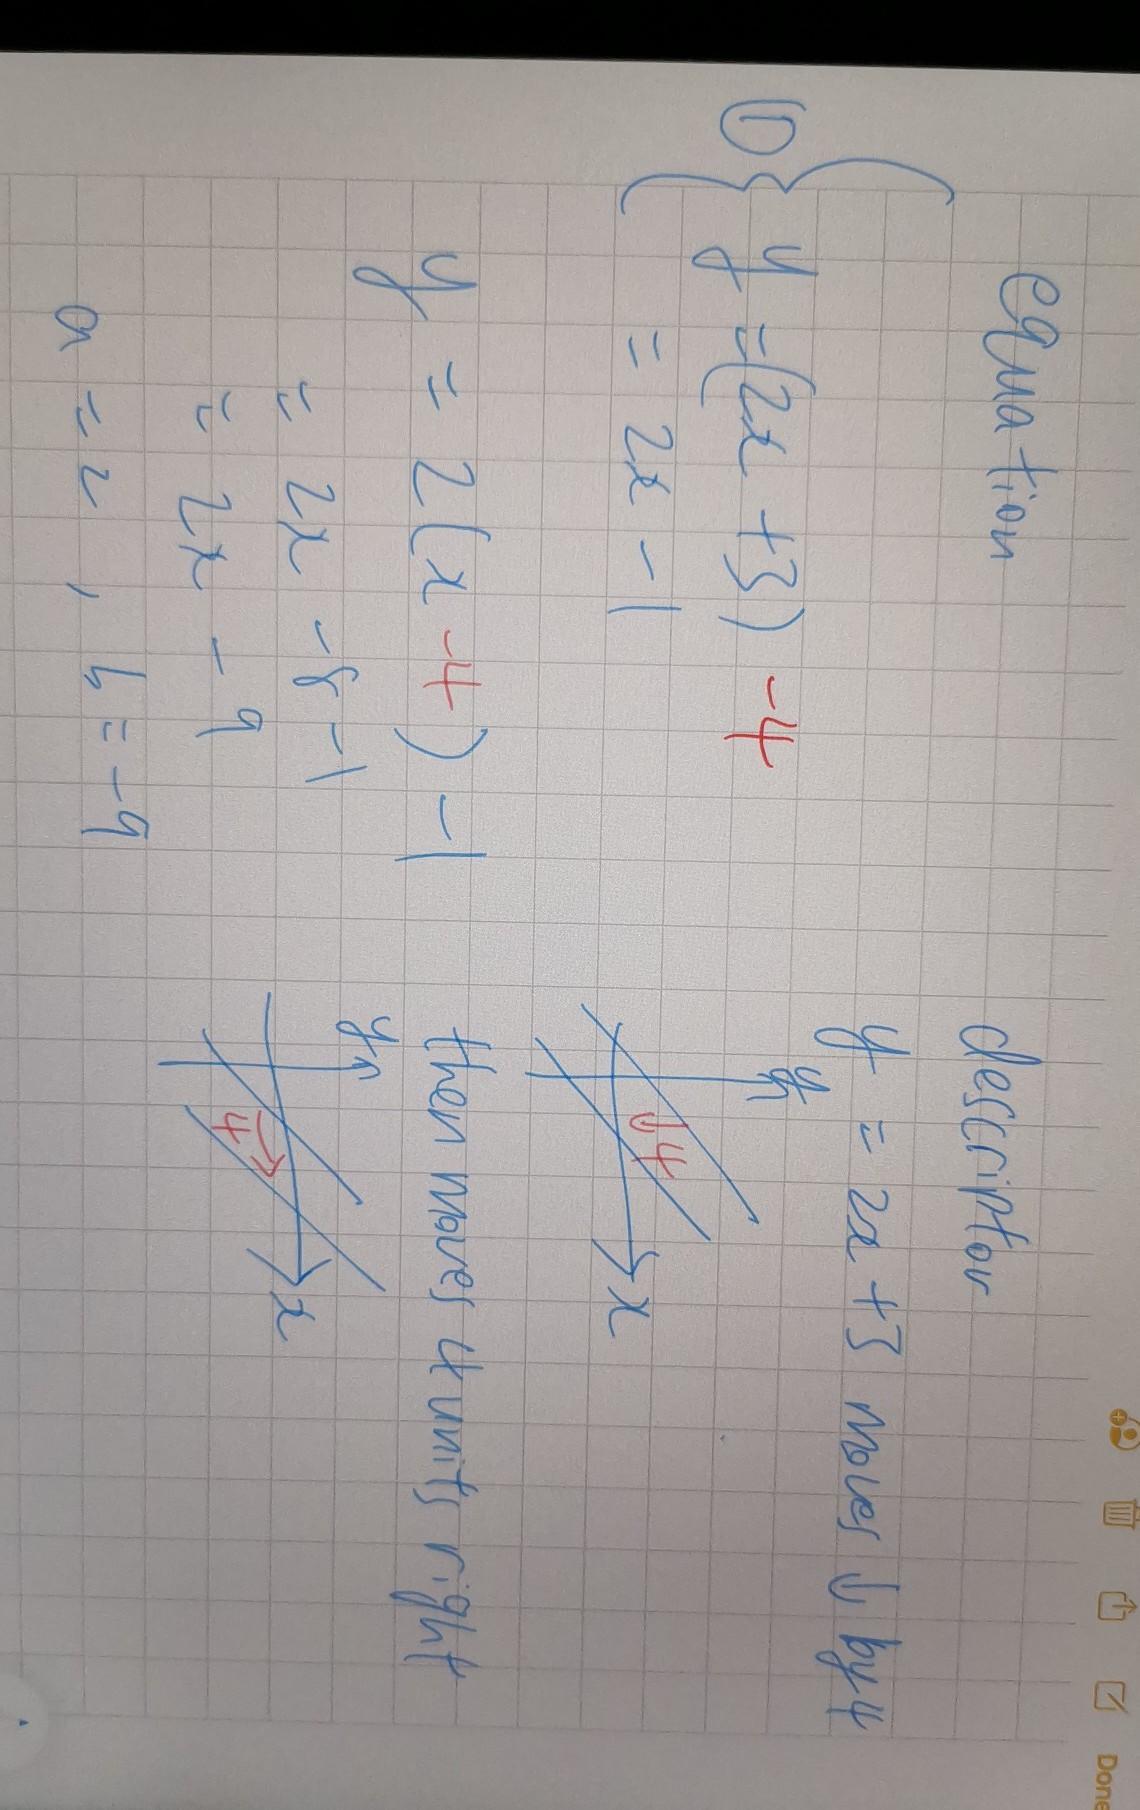 equation
descriptor
① y = (2x + 3) - 4
= 2x - 1
y = 2x + 3 moves ↓ by 4
y
↓4
x
y = 2(x - 4) - 1
= 2x - 8 - 1
= 2x - 9
a = 2, b = -9
then moves 4 units right
y
4
x
Done